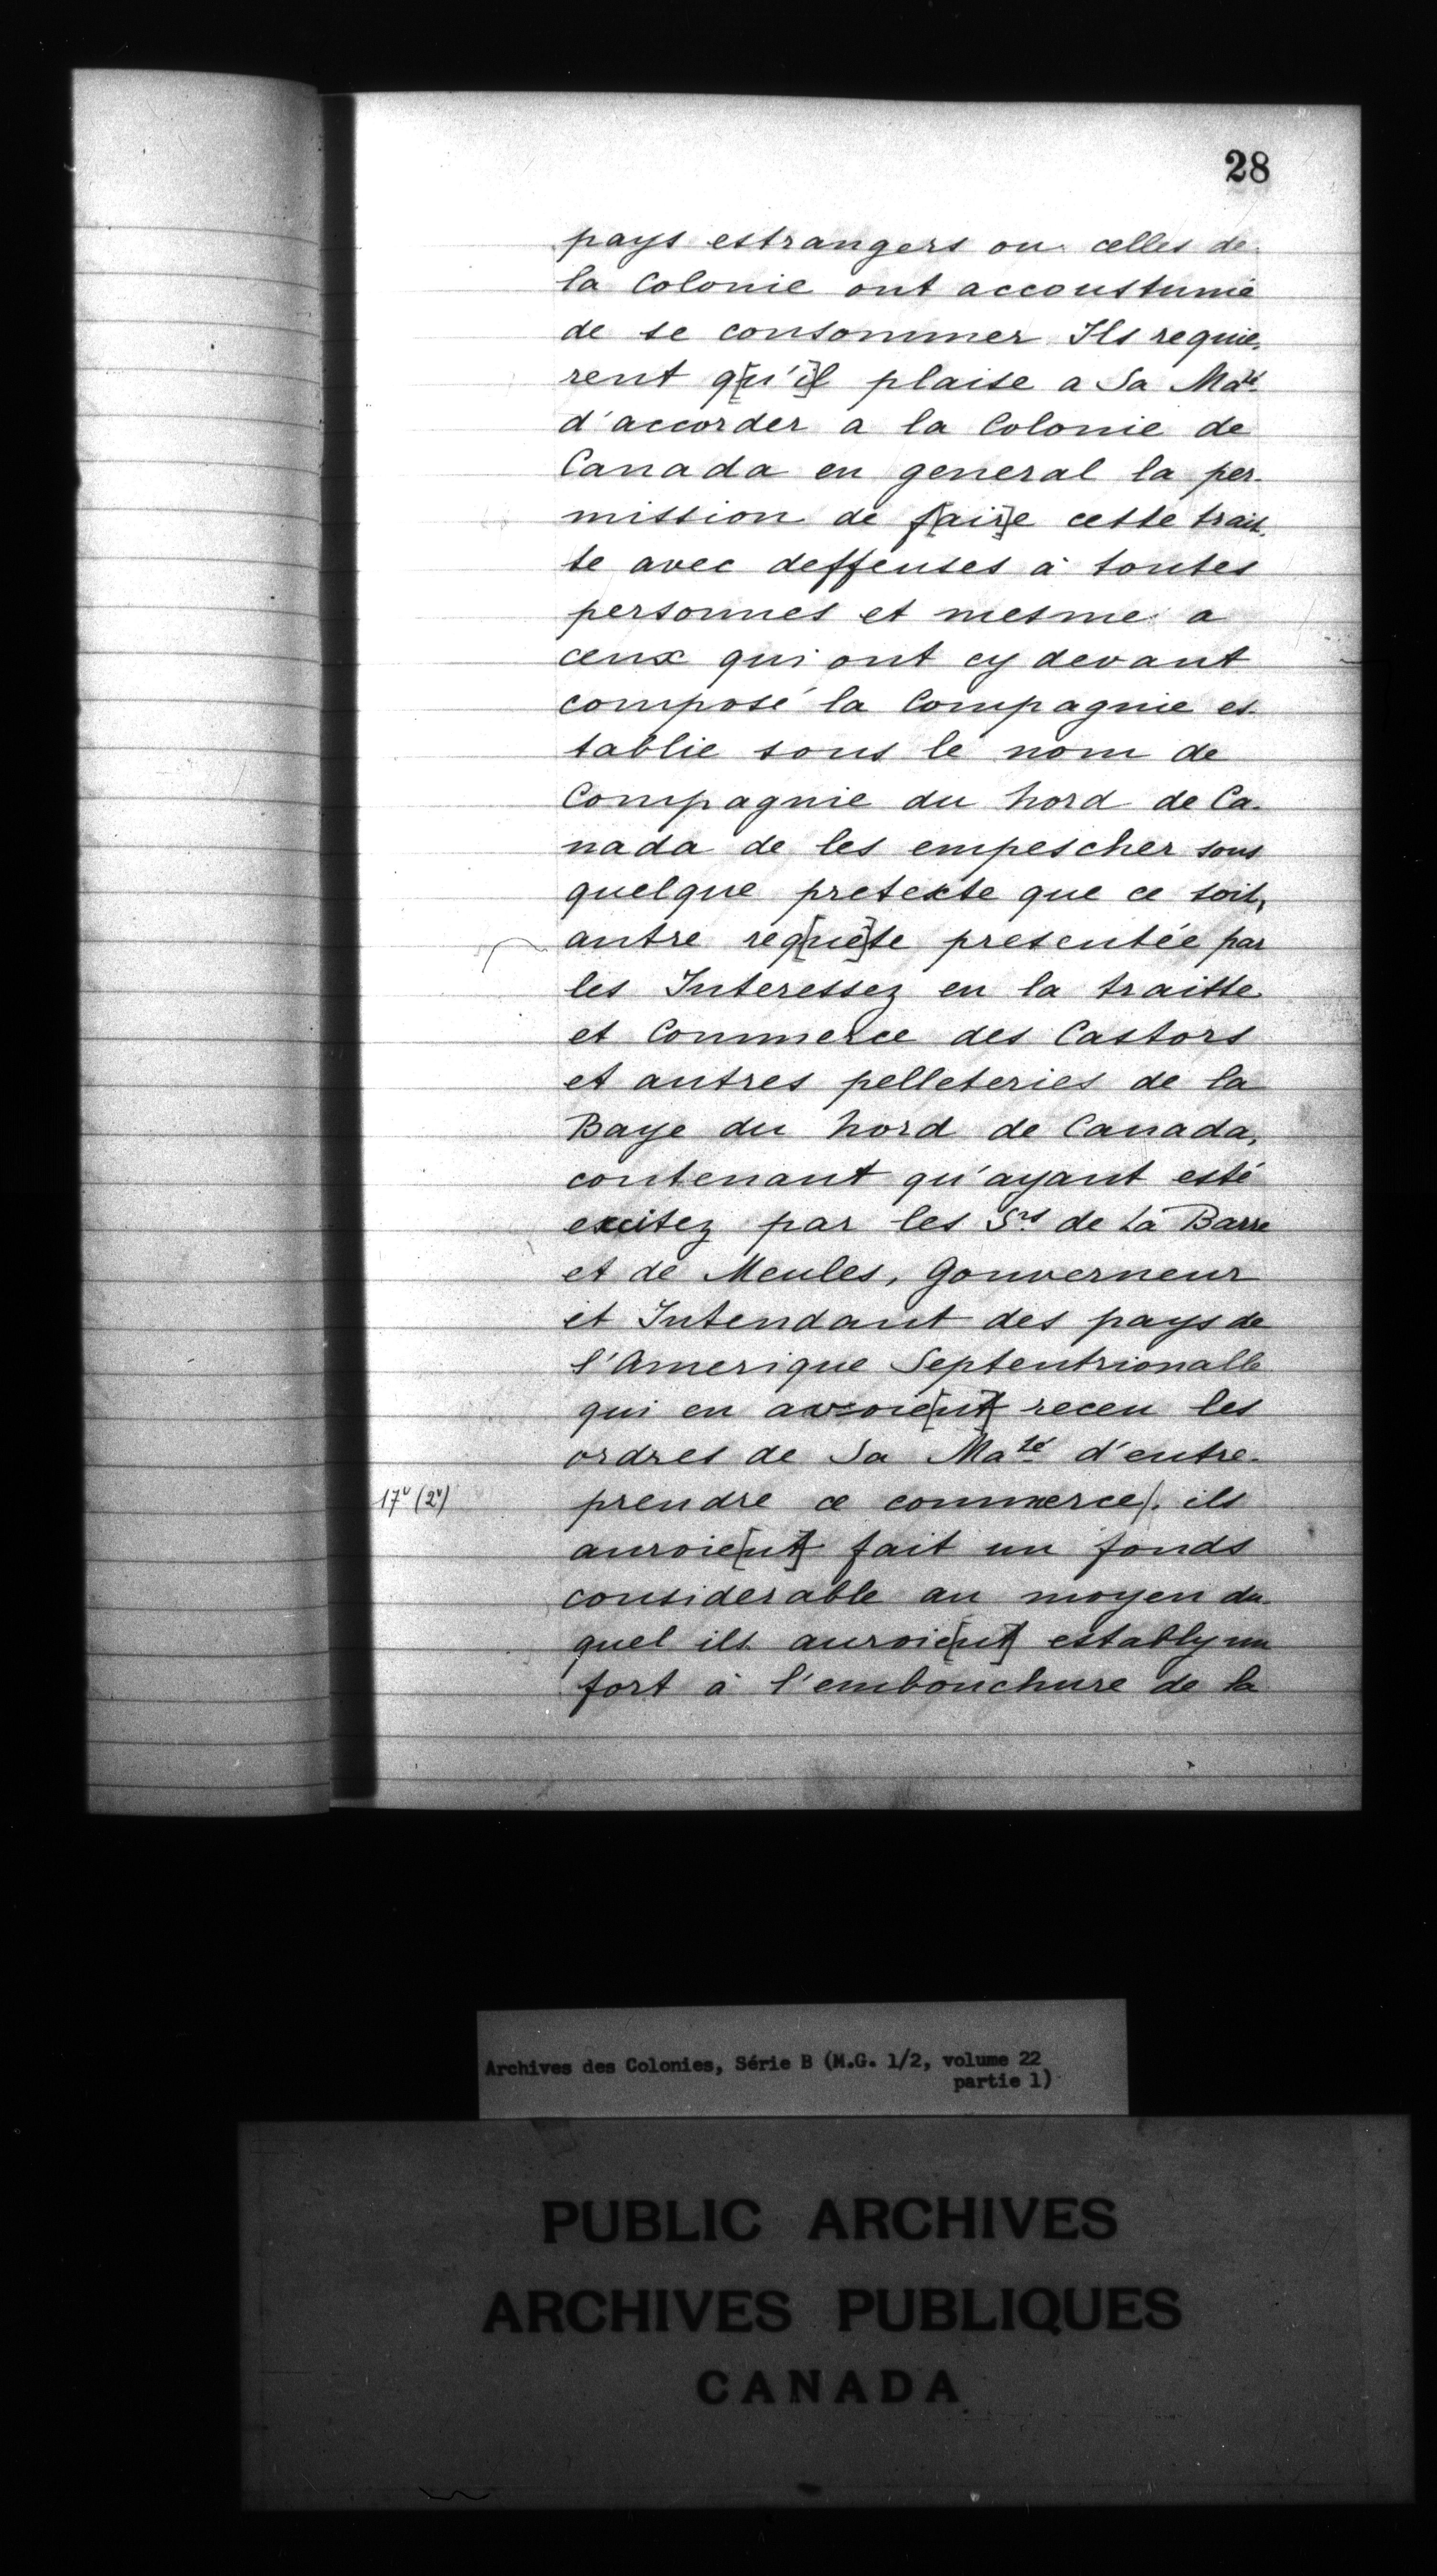 28
pays estrangers ou celles de
la Colonie ont accoustumé
de se consommer Ils requie-
rent q[u'i]l plaise a Sa Maté
d'accorder a la Colonie de
Canada en general la per-
mission de f[air]e cette trait-
te avec deffenses à toutes
personnes et mesme a
ceux qui ont cy devant
composé la Compagnie es-
tablie sous le nom de
Compagnie du Nord de Ca-
nada de les empescher sous
quelque pretexte que ce soit,
autre req[uê]te presentée par
les Interessez en la traitte
et Commerce des Castors
et autres pelleteries de la
Baye du Nord de Canada,
contenant qu'ayant esté
excitez par les Srs de La Barre
et de Meules, Gouverneur
et Intendant des pays de
l'Amerique Septentrionalle
qui en avoie[nt] receu les
ordres de Sa Maté d'entre-
17v (2v) prendre ce commerce/. ils
auroie[nt] fait un fonds
considerable au moyen du-
quel ils auroie[nt] establyun
fort à l'embouchure de la
Archives des Colonies, Série B (M.G. 1/2, volume 22
partie 1)
PUBLIC ARCHIVES
ARCHIVES PUBLIQUES
CANADA